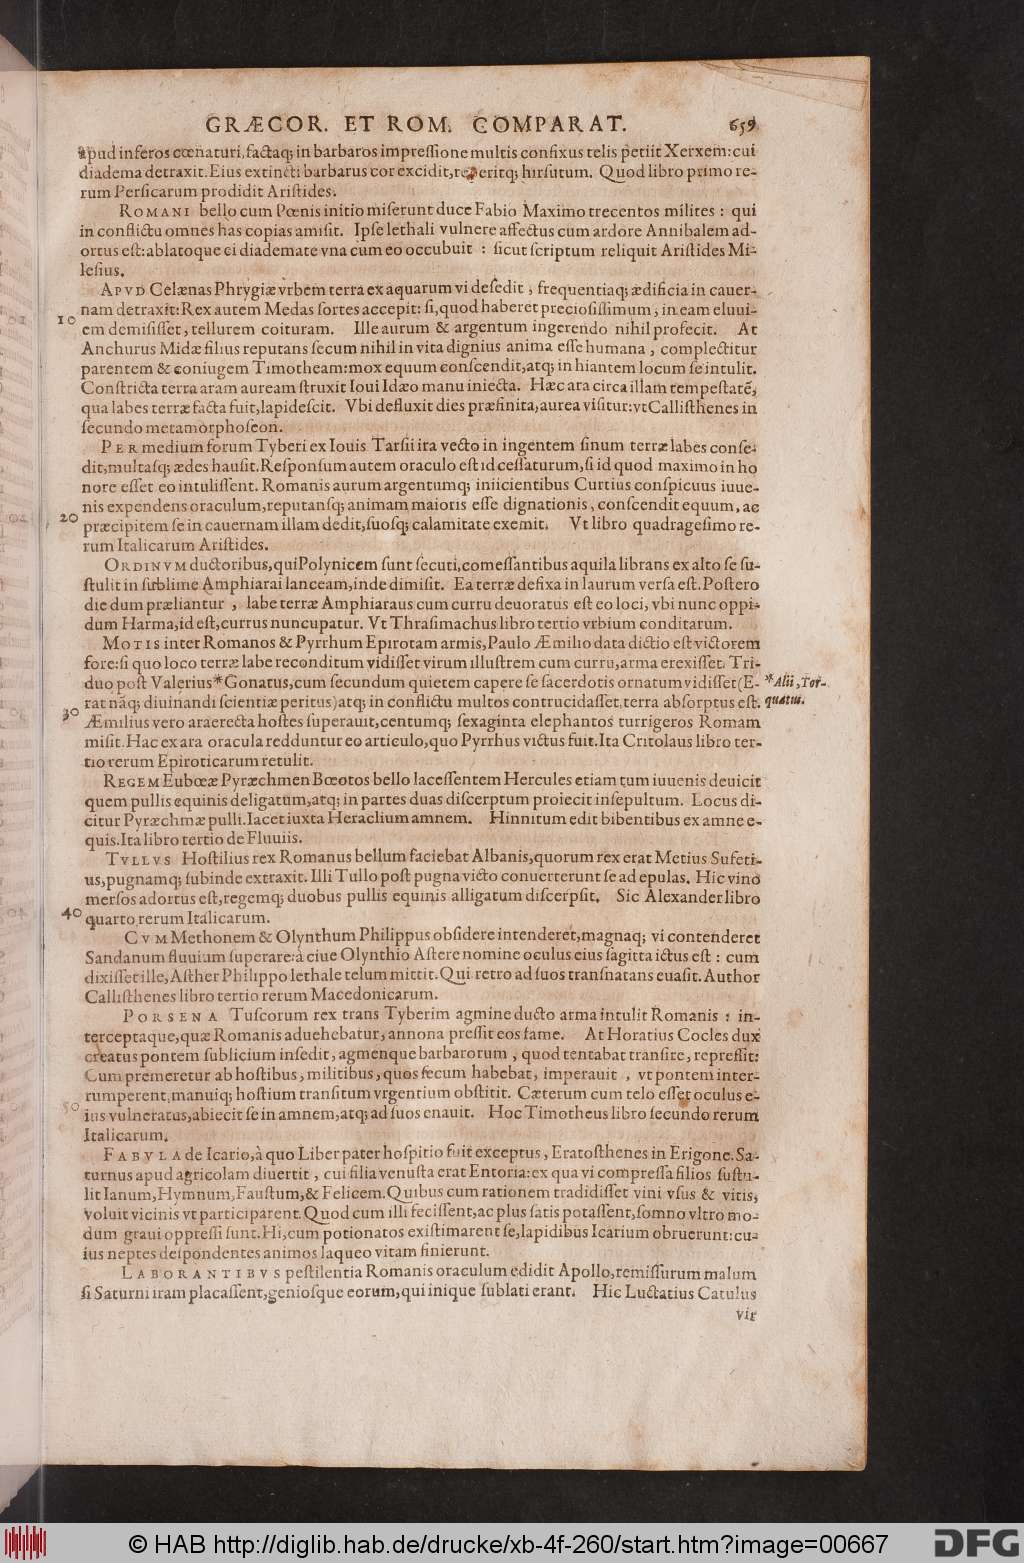 GRÆCOR. ET ROM. COMPARAT. 659
apud inferos cœnaturi, factaq; in barbaros impreſſione multis confixus telis petiit Xerxem: cui
diadema detraxit. Eius extincti barbarus cor excidit, reperitq; hirſutum. Quod libro primo re-
rum Perſicarum prodidit Ariſtides.
ROMANI bello cum Pœnis initio miſerunt duce Fabio Maximo trecentos milites : qui
in conflictu omnes has copias amiſit. Ipſe lethali vulnere affectus cum ardore Annibalem ad-
ortus eſt: ablatoque ei diademate vna cum eo occubuit : ſicut ſcriptum reliquit Ariſtides Mi-
leſius.
APVD Celænas Phrygiæ vrbem terra ex aquarum vi deſedit, frequentiaq; ædificia in cauer-
nam detraxit: Rex autem Medas ſortes accepit: ſi, quod haberet precioſiſſimum, in eam eluui-
10 em demiſiſſet, tellurem coituram. Ille aurum & argentum ingerendo nihil profecit. At
Anchurus Midæ filius reputans ſecum nihil in vita dignius anima eſſe humana, complectitur
parentem & coniugem Timotheam: mox equum conſcendit, atq; in hiantem locum ſe intulit.
Conſtricta terra aram auream ſtruxit Ioui Idæo manu iniecta. Hæc ara circa illam tempeſtatẽ,
qua labes terræ facta fuit, lapideſcit. Vbi defluxit dies præfinita, aurea viſitur: vt Calliſthenes in
ſecundo metamorphoſeon.
PER medium forum Tyberi ex Iouis Tarſii ira vecto in ingentem ſinum terræ labes conſe-
dit, multaſq; ædes hauſit. Reſponſum autem oraculo eſt id ceſſaturum, ſi id quod maximo in ho
nore eſſet eo intuliſſent. Romanis aurum argentumq; iniicientibus Curtius conſpicuus iuue-
nis expendens oraculum, reputanſq; animam maioris eſſe dignationis, conſcendit equum, ac
20 præcipitem ſe in cauernam illam dedit, ſuoſq; calamitate exemit. Vt libro quadrageſimo re-
rum Italicarum Ariſtides.
ORDINVM ductoribus, qui Polynicem ſunt ſecuti, comeſſantibus aquila librans ex alto ſe ſu-
ſtulit in ſublime Amphiarai lanceam, inde dimiſit. Ea terræ defixa in laurum verſa eſt. Poſtero
die dum præliantur, labe terræ Amphiaraus cum curru deuoratus eſt eo loci, vbi nunc oppi-
dum Harma, id eſt, currus nuncupatur. Vt Thraſimachus libro tertio vrbium conditarum.
MOTIS inter Romanos & Pyrrhum Epirotam armis, Paulo Æmilio data dictio eſt victorem
fore: ſi quo loco terræ labe reconditum vidiſſet virum illuſtrem cum curru, arma erexiſſet. Tri-
duo poſt Valerius * Gonatus, cum ſecundum quietem capere ſe ſacerdotis ornatum vidiſſet (E- * Alii, Tor-
rat nãq; diuinandi ſcientiæ peritus) atq; in conflictu multos contrucidaſſet, terra abſorptus eſt. quatus.
30 Æmilius vero ara erecta hoſtes ſuperauit, centumq; ſexaginta elephantos turrigeros Romam
miſit. Hac ex ara oracula redduntur eo articulo, quo Pyrrhus victus fuit. Ita Critolaus libro ter-
tio rerum Epiroticarum retulit.
REGEM Eubœæ Pyræchmen Bœotos bello laceſſentem Hercules etiam tum iuuenis deuicit
quem pullis equinis deligatum, atq; in partes duas diſcerptum proiecit inſepultum. Locus di-
citur Pyræchmæ pulli. Iacet iuxta Heraclium amnem. Hinnitum edit bibentibus ex amne e-
quis. Ita libro tertio de Fluuiis.
TVLLVS Hoſtilius rex Romanus bellum faciebat Albanis, quorum rex erat Metius Sufeti-
us, pugnamq; ſubinde extraxit. Illi Tullo poſt pugna victo conuerterunt ſe ad epulas. Hic vino
merſos adortus eſt, regemq; duobus pullis equinis alligatum diſcerpſit. Sic Alexander libro
40 quarto rerum Italicarum.
CVM Methonem & Olynthum Philippus obſidere intenderet, magnaq; vi contenderet
Sandanum fluuium ſuperare: à ciue Olynthio Aſtere nomine oculus eius ſagitta ictus eſt : cum
dixiſſet ille, Aſther Philippo lethale telum mittit. Qui retro ad ſuos tranſnatans euaſit. Author
Calliſthenes libro tertio rerum Macedonicarum.
PORSENA Tuſcorum rex trans Tyberim agmine ducto arma intulit Romanis : in-
terceptaque, quæ Romanis aduehebatur, annona preſſit eos fame. At Horatius Cocles dux
creatus pontem ſublicium inſedit, agmenque barbarorum, quod tentabat tranſire, repreſſit:
Cum premeretur ab hoſtibus, militibus, quos ſecum habebat, imperauit, vt pontem inter-
rumperent, manuiq; hoſtium tranſitum vrgentium obſtitit. Cæterum cum telo eſſet oculus e-
50 ius vulneratus, abiecit ſe in amnem, atq; ad ſuos enauit. Hoc Timotheus libro ſecundo rerum
Italicarum.
FABVLA de Icario, à quo Liber pater hoſpitio fuit exceptus, Eratoſthenes in Erigone. Sa-
turnus apud agricolam diuertit, cui filia venuſta erat Entoria: ex qua vi compreſſa filios ſuſtu-
lit Ianum, Hymnum, Fauſtum, & Felicem. Quibus cum rationem tradidiſſet vini vſus & vitis,
voluit vicinis vt participarent. Quod cum illi feciſſent, ac plus ſatis potaſſent, ſomno vltro mo-
dum graui oppreſſi ſunt. Hi, cum potionatos exiſtimarent ſe, lapidibus Icarium obruerunt: cu-
ius neptes deſpondentes animos laqueo vitam finierunt.
LABORANTIBVS peſtilentia Romanis oraculum edidit Apollo, remiſſurum malum
ſi Saturni iram placaſſent, genioſque eorum, qui inique ſublati erant. Hic Luctatius Catulus
vir
© HAB http://diglib.hab.de/drucke/xb-4f-260/start.htm?image=00667 DFG